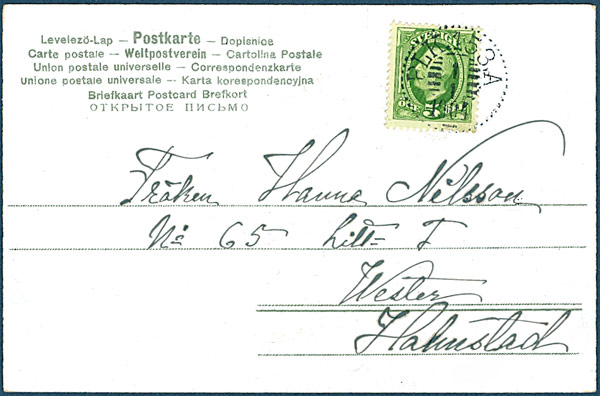 Levelezö-Lap – Postkarte – Dopisnice
Carte postale – Weltpostverein – Cartolina Postale
Union postale universelle – Correspondenzkarte
Unione postale universale – Karta korespondencyjna
Briefkaart Postcard Brefkort
ОТКРЫТОЕ ПИСЬМО
Fröken Hanna Nilsson
No 65 Litt F
Wester
Halmstad